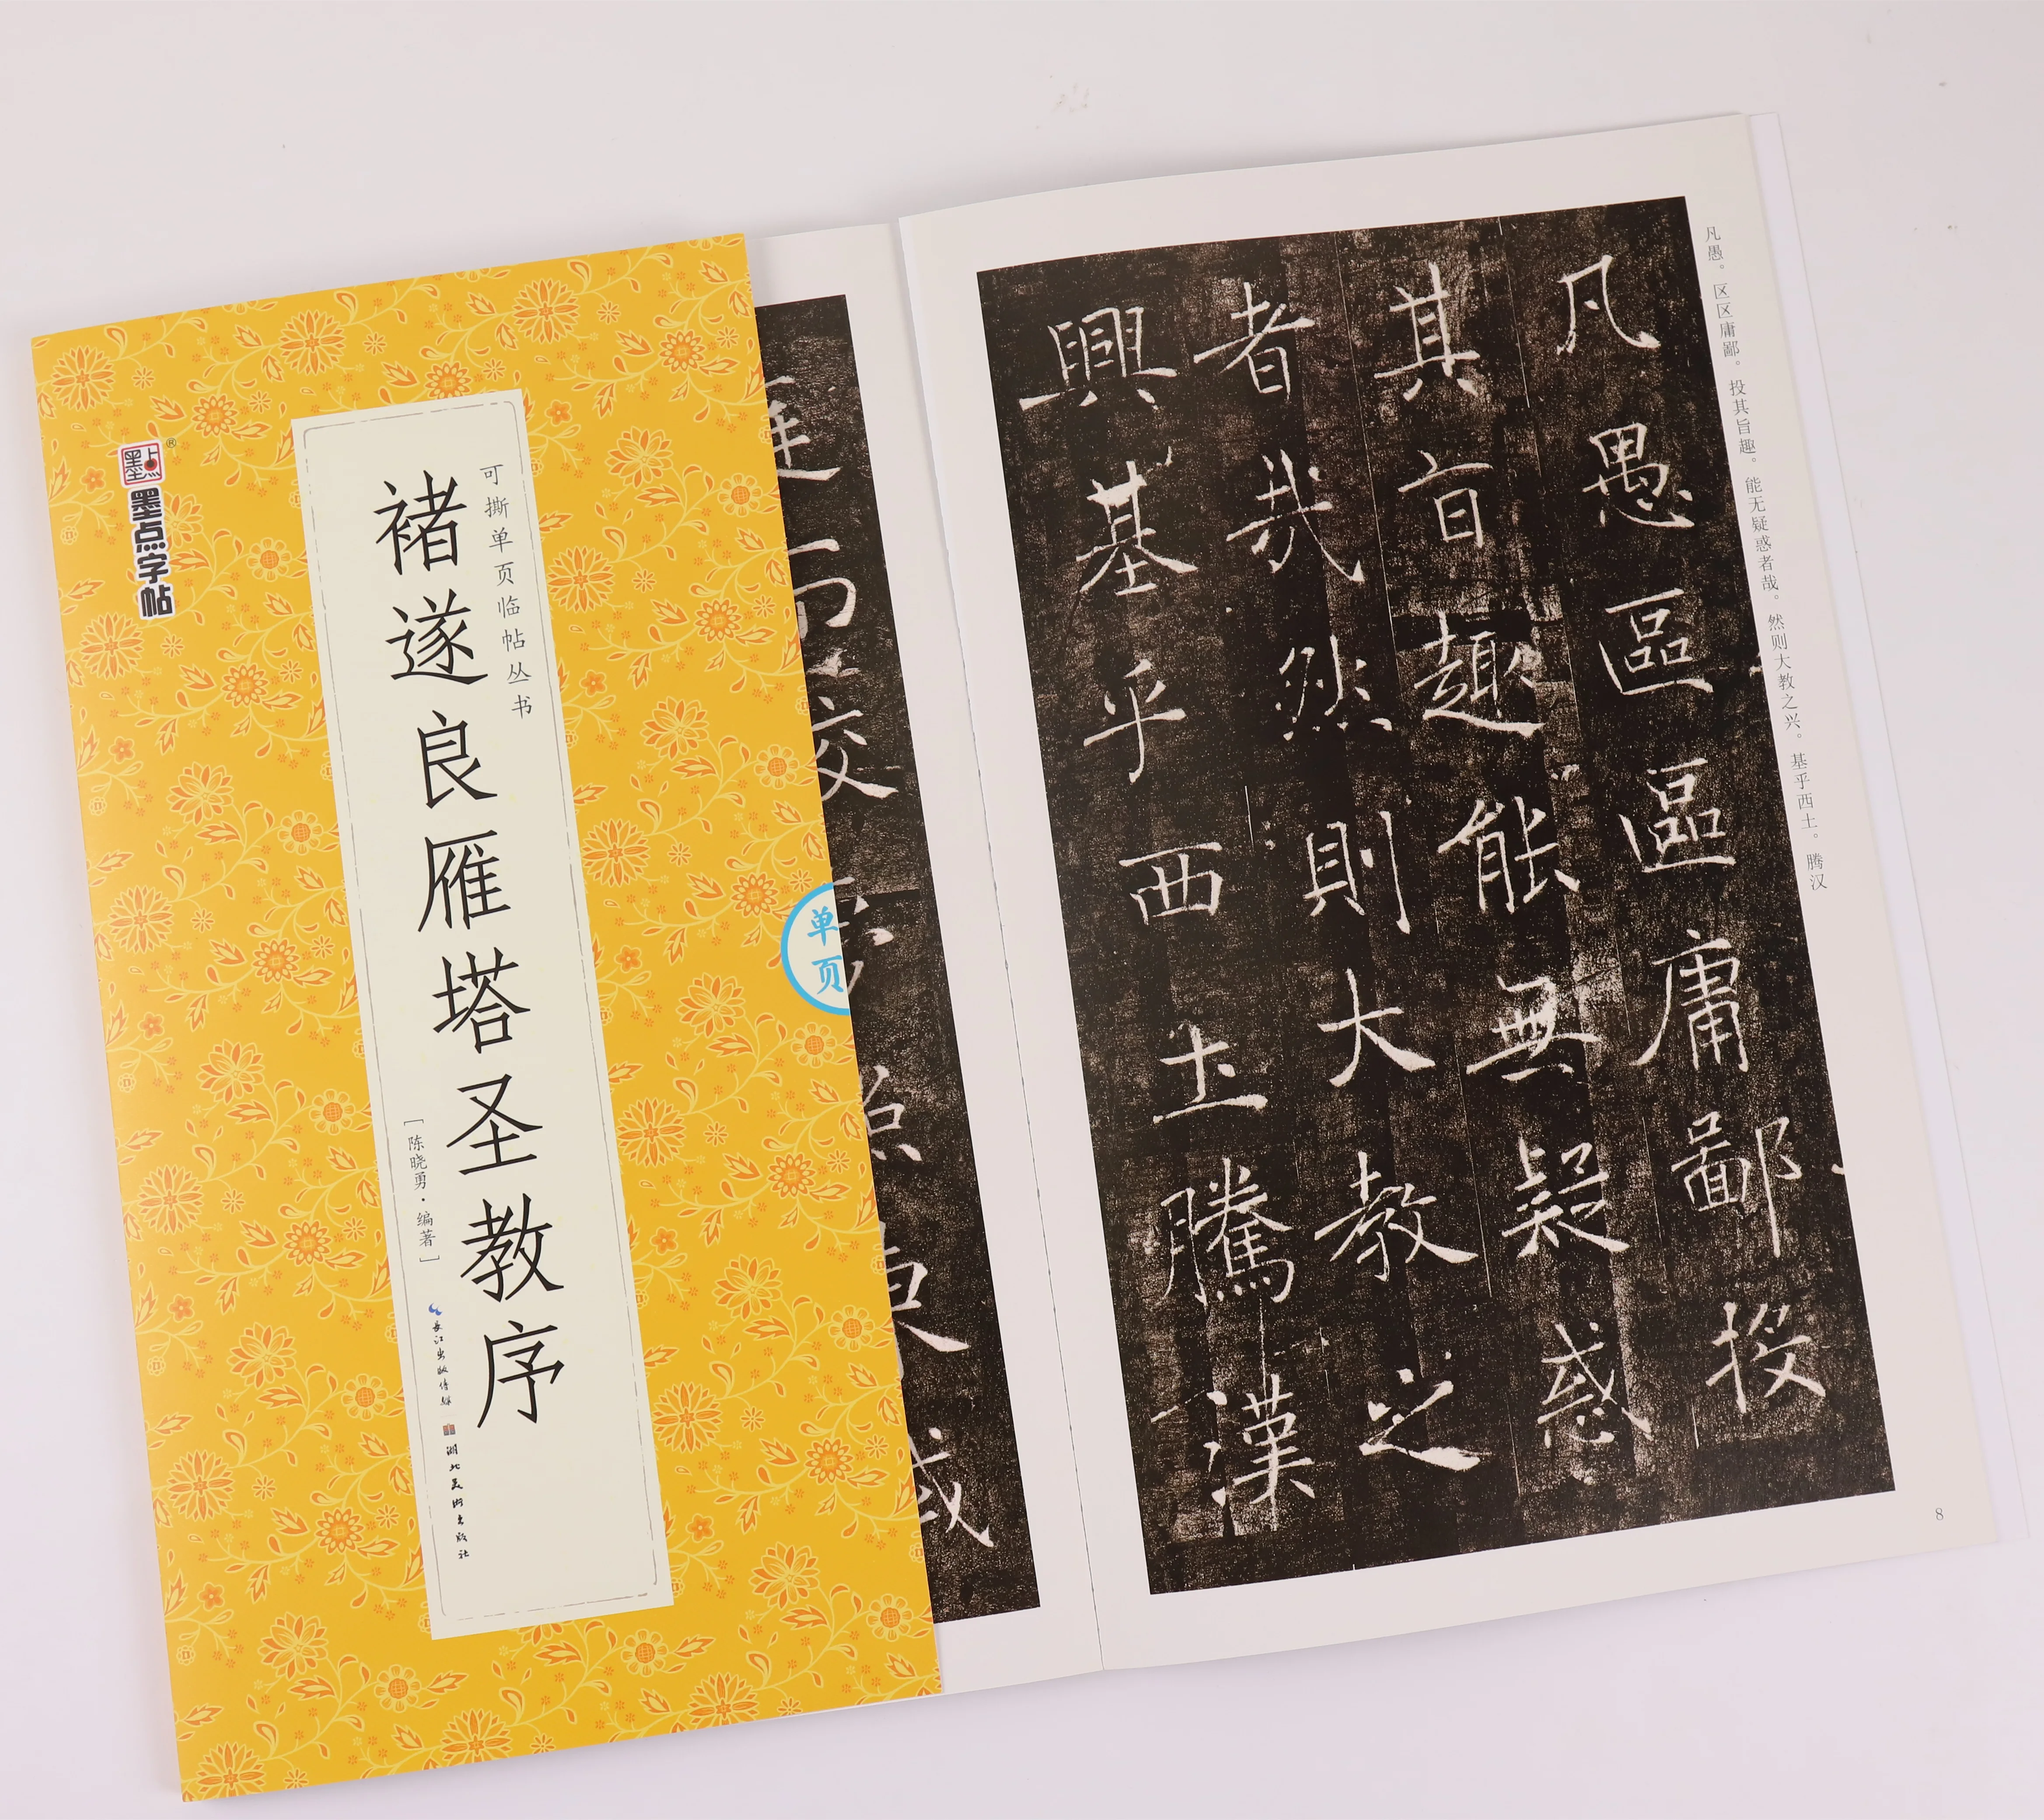 墨点
墨点字帖
可撕单页临帖丛书
褚遂良雁塔圣教序
［陈晓勇·编著］
长江出版传媒
湖北美术出版社
单页
凡愚。区区庸鄙。投其旨趣。能无疑惑者哉。然则大教之兴。基乎西土。腾汉
凡愚區區庸鄙投
其旨趣能無疑惑
者哉然則大教之
興基乎西土騰漢
8